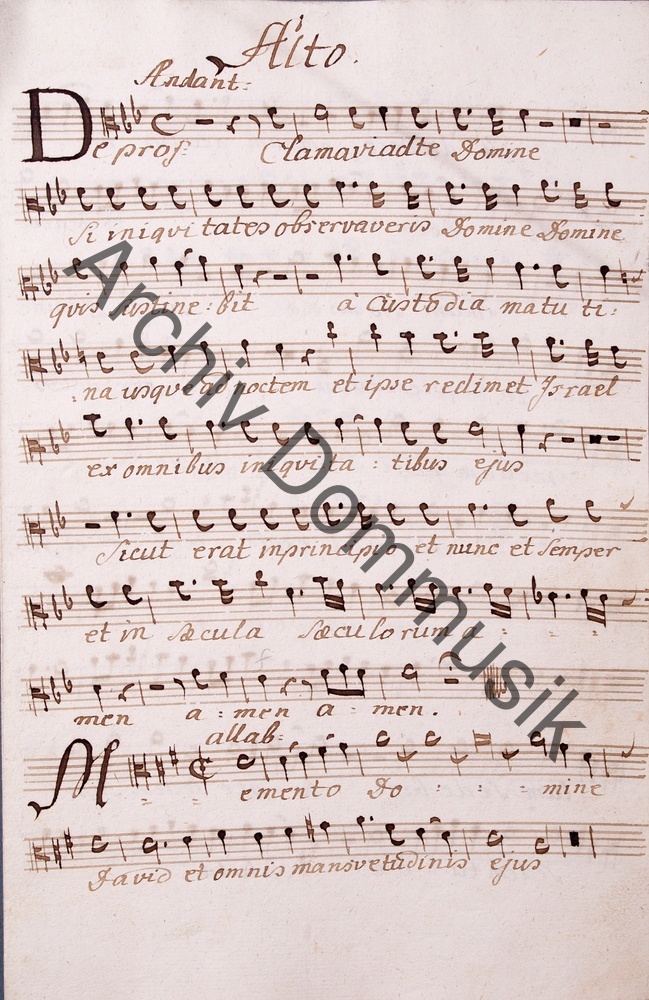 Alto.
Andant:
De prof: Clamavi ad te Domine
Si iniqui tates observaveris Domine Domine
quis sustine: bit a Custodia matu ti:
:na usque ad noctem et ipse redimet Israel
ex omnibus iniquita: tibus ejus
Sicut erat in principio et nunc et Semper
et in sæcula sæculorum a - - -
men a: men a: men.
allab:
M - - emento Do : : : mine
David et omnis mansvetudinis ejus
Archiv Dommusik